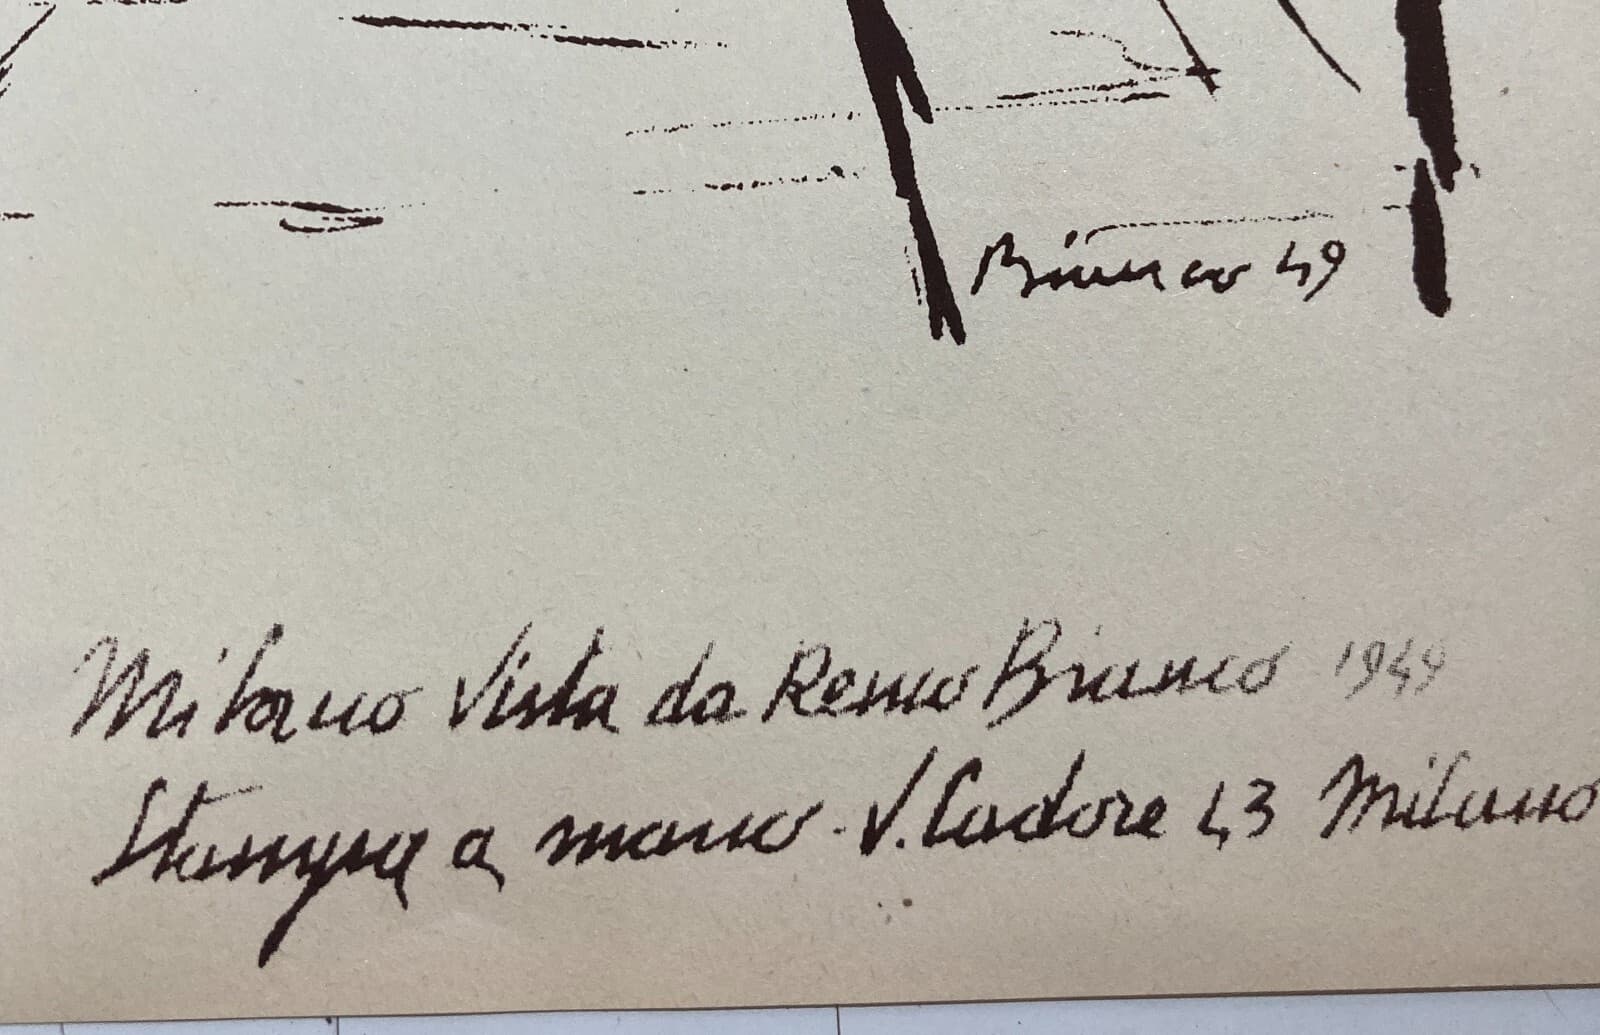 Bianco 49
Milano Vista da Remo Bianco 1949
Stampa a mano - V. Cadore 43 Milano